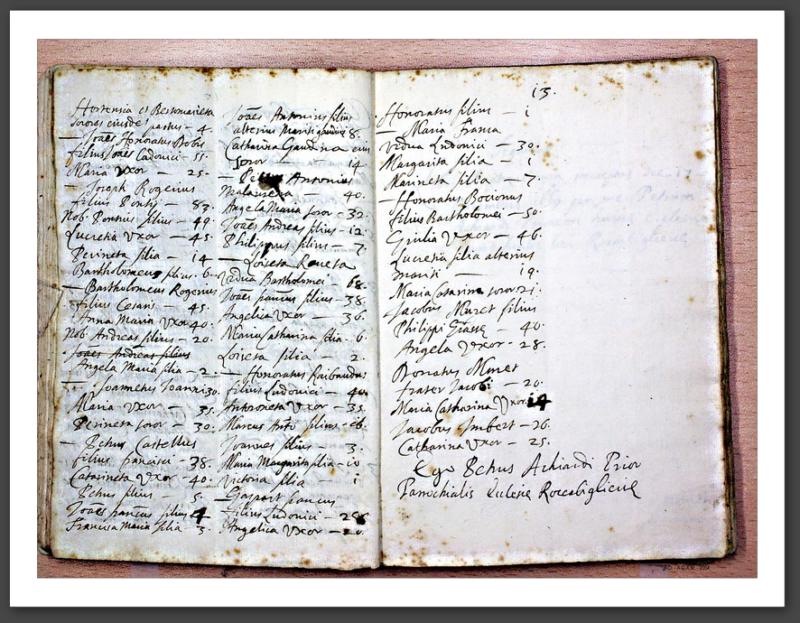 Hortensia et Bertomaireta
sorores eiusdẽ partus - 4
— Joães Honoratus Bobis
filius Joães Ludovici - 55.
Maria Vxor — 25 -
— Joseph Rogerius
filius Pontij — 83.
Nob. Pontius filius - 49.
Lucretia Vxor — 45.
Perineta filia — 14 -
Bartholomeus filius. 6 -
— Bartholomeus Rogerius
filius Cesaris — 45.
Anna Maria Vxor 40.
Nob. Andreas filius - 20.
Joães Andreas filius
Angela Maria filia — 2.
— Joannetus 30.
Maria Vxor — 35.
Perineta soror — 30.
— Petrus Castellus
filius francisci - 38.
Cataineta Vxor - 40.
Petrus filius 5.
Joães francus filius 4
Francisca Maria filia - 3.
Joães Antonius filius
alterius 8.
Catharina Gaudina eius
Soror — 14
— Petrus Antonius
Malausena — 40.
Angela Maria soror - 32.
Joães Andreas filius - 12.
Philippus filius — 7.
— Loiseta Raveta
Vidua Bartholomei - 68.
Joães francus filius - 38.
Angelica Vxor — 36.
Maria Catharina filia - 6.
Loiseta filia — 2.
— Honoratus Raibaudus
filius Ludovici — 40.
Antoroneta Vxor — 35.
Marcus Antõ filius - 16.
Joannes filius — 3.
Maria Margarita filia - 10
Victoria filia — i
— Gaspart
filius Ludovici -
Angelica Vxor — 20.
13.
Honoratus filius — i
— Maria Franca
Vidua Ludovici — 30.
Margarita filia — i
Marineta filia — 7.
— Honoratus Bocionus
filius Bartholomei — 50.
Giulia Vxor — 46.
Lucretia filia alterius
mariti — 19.
Maria Catarina soror 21.
— Jacobus Muret filius
Philippi — 40.
Angela Vxor - 28.
Donatus Muret
frater Jacobi — 20.
Maria Catharina Vxor 14
Jacobus Imbert — 26.
Catharina Vxor — 25.
Ego Petrus Achiardi Prior
Parochialis Eclesie Roccabiglierie